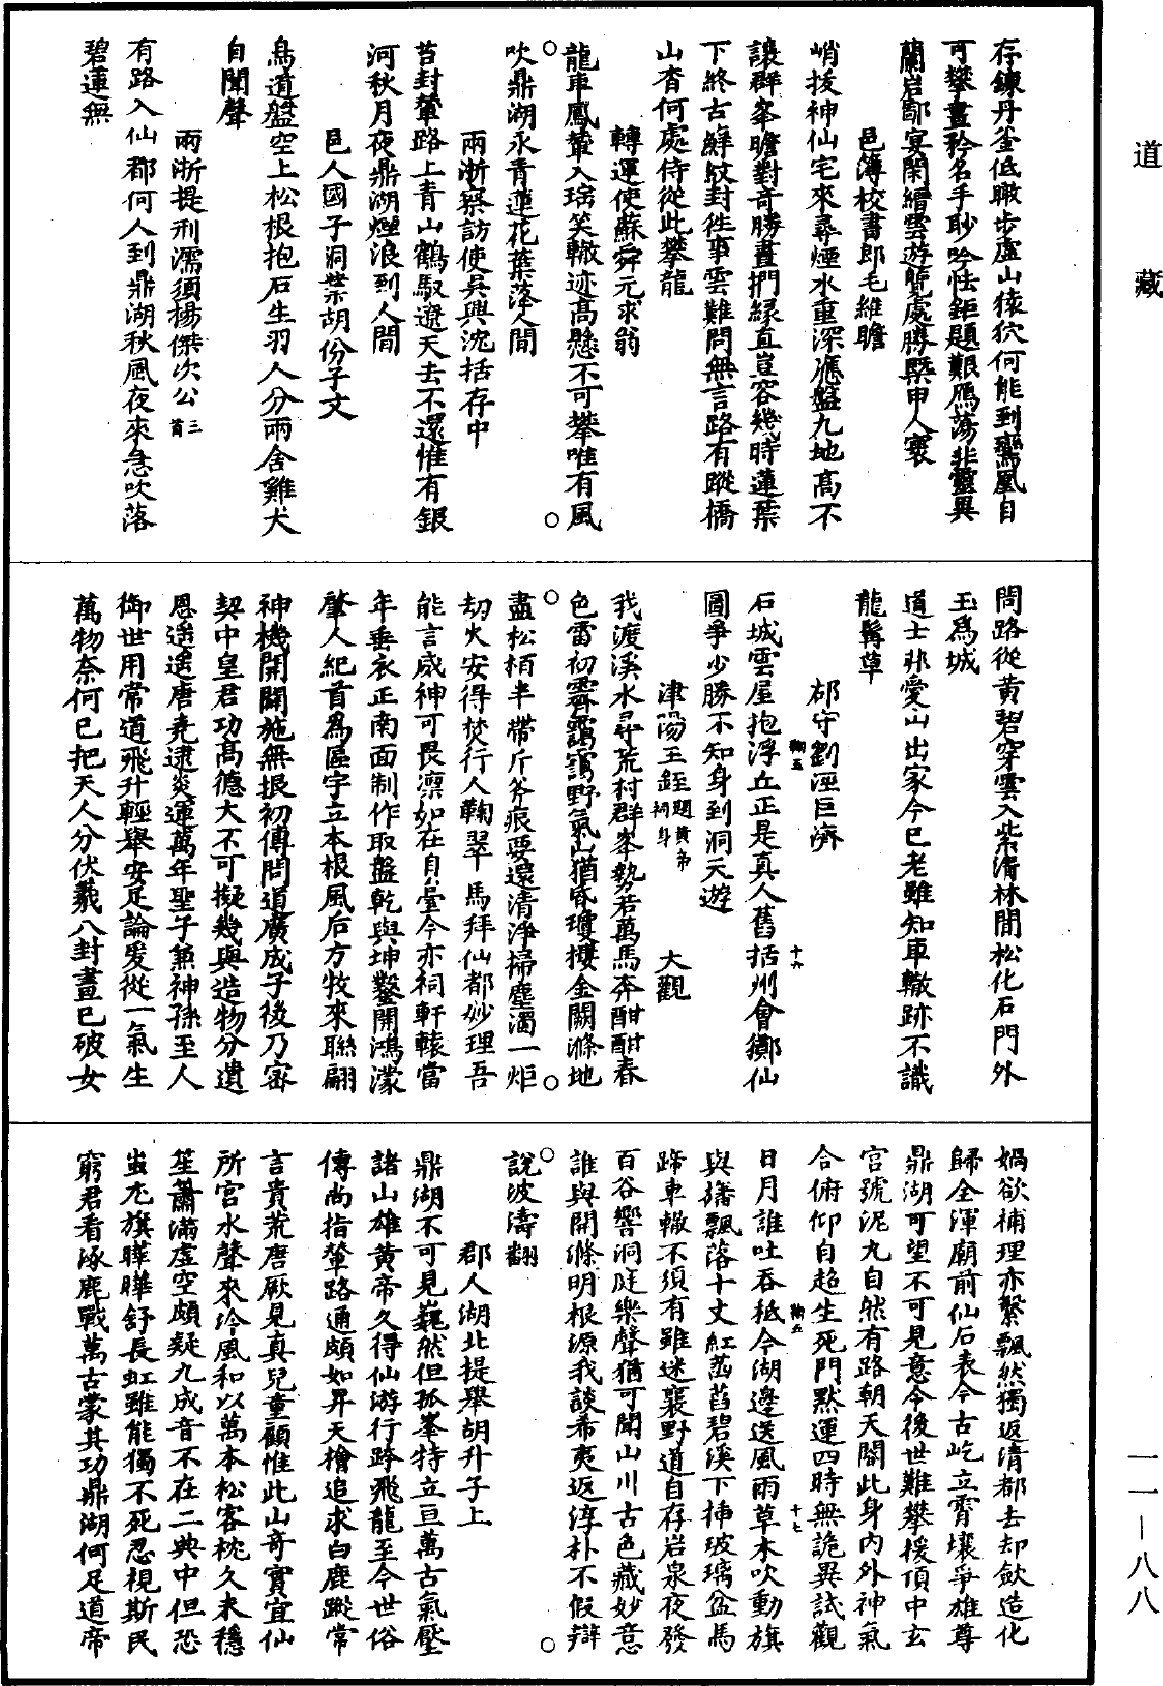 道藏
存鍊丹釜低瞰步虛山猿狖何能到鸞凰自
可攀畫矜名手眇吟怯鉅題艱鴈蕩非靈異
蘭岩鄙宴閑縉雲遊覽處勝槩申人寰
邑簿校書郎毛維瞻
峭拔神仙宅來尋煙水重深應盤九地高不
讓群峯瞻對奇勝畫捫緣直豈容幾時蓮葉
下終古蘚紋封徃事雲難問無言路有蹤橋
山杳何處侍從此攀龍
轉運使蘇舜元求翁
龍車鳳輦入瑤笑轍迹髙懸不可攀唯有風
吹鼎湖水青蓮花葉落人間
兩浙察訪使吳興沈括存中
苔封輦路上青山鶴馭遼天去不還惟有銀
河秋月夜鼎湖煙浪到人間
邑人國子洞業胡份子文
鳥道盤空上松根抱石生羽人分兩舍雞犬
自聞聲
兩浙提刑濡須楊傑次公三首
有路入仙都何人到鼎湖秋風夜來急吹落
碧蓮無
問路從黃碧穿雲入柴滑林間松化石門外
玉爲城
道士非愛山出家今已老雖知車轍跡不識
龍髯草
郡守劉涇巨濟
石城雲屋抱浮丘正是真人舊括州會擲仙
圖爭少勝不知身到洞天遊
津陽王銍題黄帝祠身 大觀
我渡溪水尋荒村群峯勢若萬馬奔酣酣春
色雷初霽靄靄野氣山猶昏瓊摟金闕滌地
盡松栢半帶斤斧痕要還清淨掃塵濁一炬
劫火安得焚行人鞠翠馬拜仙都妙理吾
能言威神可畏凛如在自台今亦祠軒轅當
年垂衣正南面制作取盤乾與坤鑿開鴻濛
肇人紀首爲區宇立本根風后方牧來聯翩
神機開闢施無垠初傳問道廣成子後乃寀
契中皇君功高德大不可擬幾與造物分遺
恩遥遥唐堯逮炎運萬年聖子兼神孫至人
御世用常道飛升輕舉安足論爰從一氣生
萬物奈何已把天人分伏羲八封畫已破女
媧欲補理亦繫飄然獨返清都去却歛造化
歸全渾廟前仙石表今古屹立霄壤爭雄尊
鼎湖可望不可見意令後世難攀援頂中玄
宮號泥丸自然有路朝天閽此身內外神氣
合俯仰自超生死門默運四時無詭異試觀
日月誰吐吞抵今湖邊送風雨草木吹動旗
與旛飄落十丈紅菡萏碧溪下揷玻璃盆馬
蹄車轍不須有雖迷襄野道自存岩泉夜發
百谷響洞庭樂聲猶可聞山川古色藏妙意
誰與開滌明根源我談希夷返淳朴不假辯
說波濤翻
郡人湖北提舉胡升子上
鼎湖不可見巍然但孤峯特立亘萬古氣壓
諸山雄黃帝久得仙游行跨飛龍至今世俗
傳尚指輦路通頗如昇天檜追求白鹿蹤常
言貴荒唐厥見真兒童顧惟此山奇實宜仙
所宮水聲來泠風和以萬本松客枕久未穩
笙簫滿虛空頗疑九成音不在二典中但恐
蚩尤旗曄曄舒長虹雖能獨不死忍視斯民
窮君看涿鹿戰萬古蒙其功鼎湖何足道帝
鞠五
十六
鞠五
十七
一一—八八